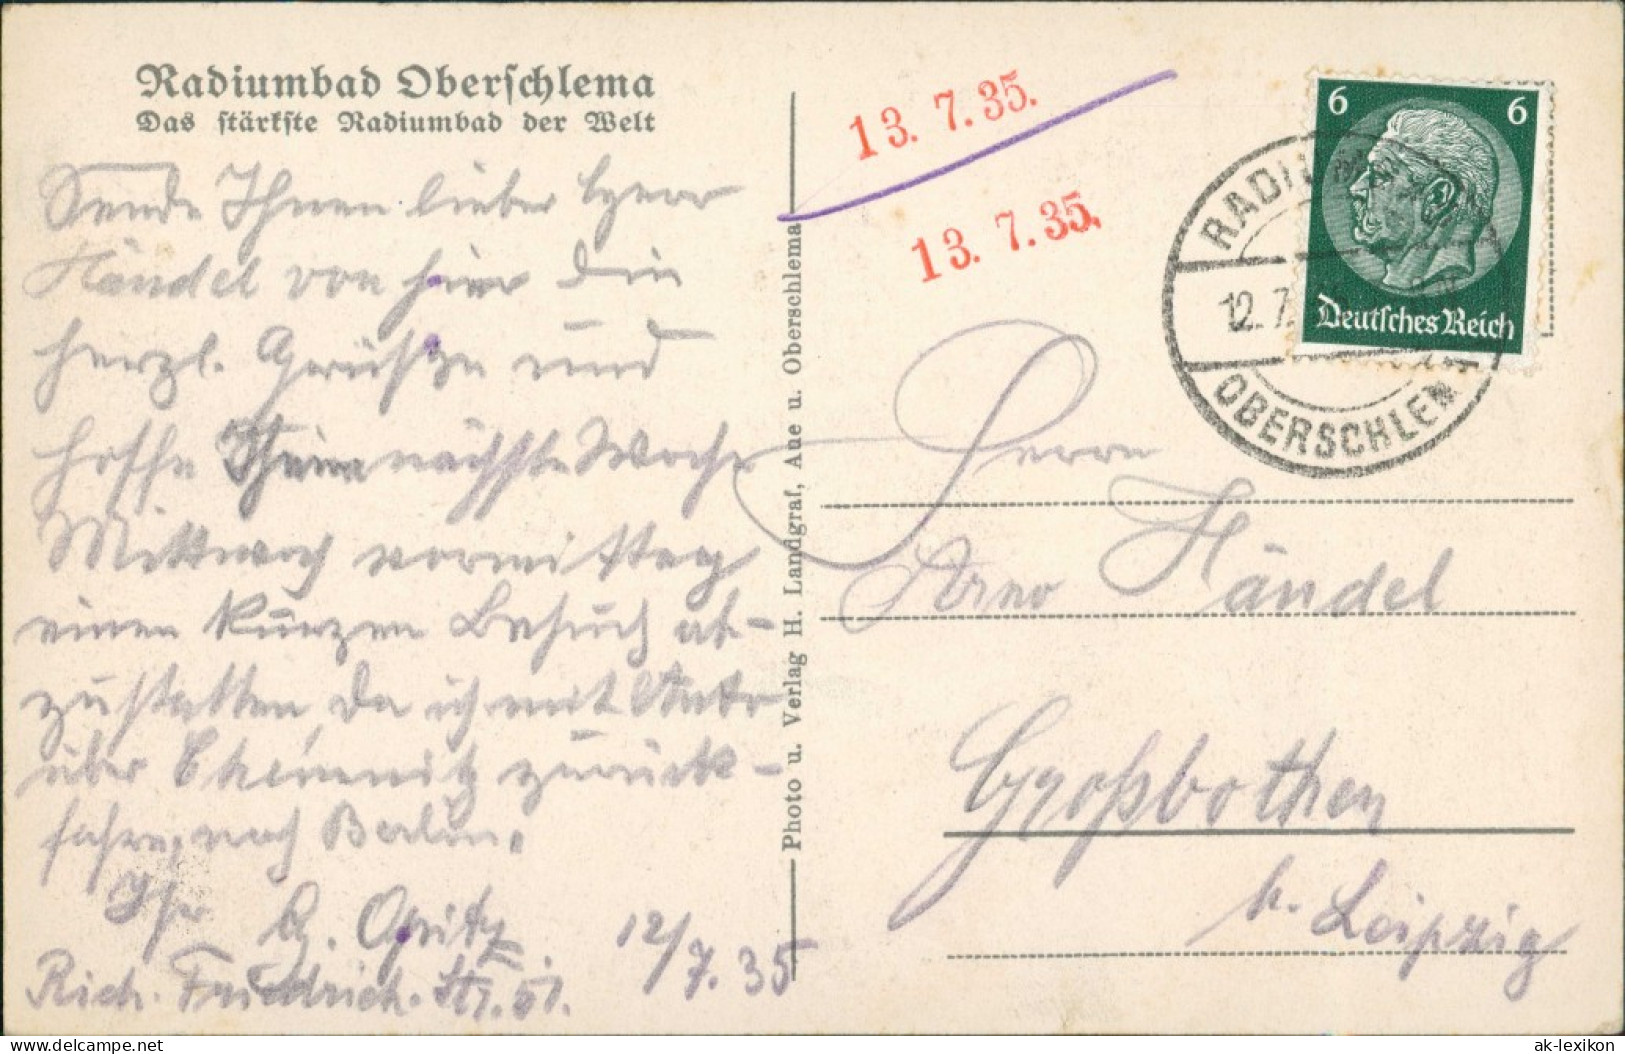 Radiumbad Oberschlema
Das stärkste Radiumbad der Welt
Sende Ihnen lieber Herr
Händel von hier die
herzl. Grüße und
hoffe Ihnen nächste Woche
Mittwoch vormittag
einen kurzen Besuch ab-
zustatten, da ich mit Auto
über Chemnitz zurück-
fahre, nach Berlin.
Ihr G. Opitz 12/7.35
Rich. Friedrich. Str. 51.
Photo u. Verlag H. Landgraf, Aue u. Oberschlema
13. 7. 35.
13. 7. 35.
6 6
Deutsches Reich
12. 7.
OBERSCHLEM
Herrn
Arno Händel
Großbothen
b. Leipzig
www.delcampe.net
ak-lexikon